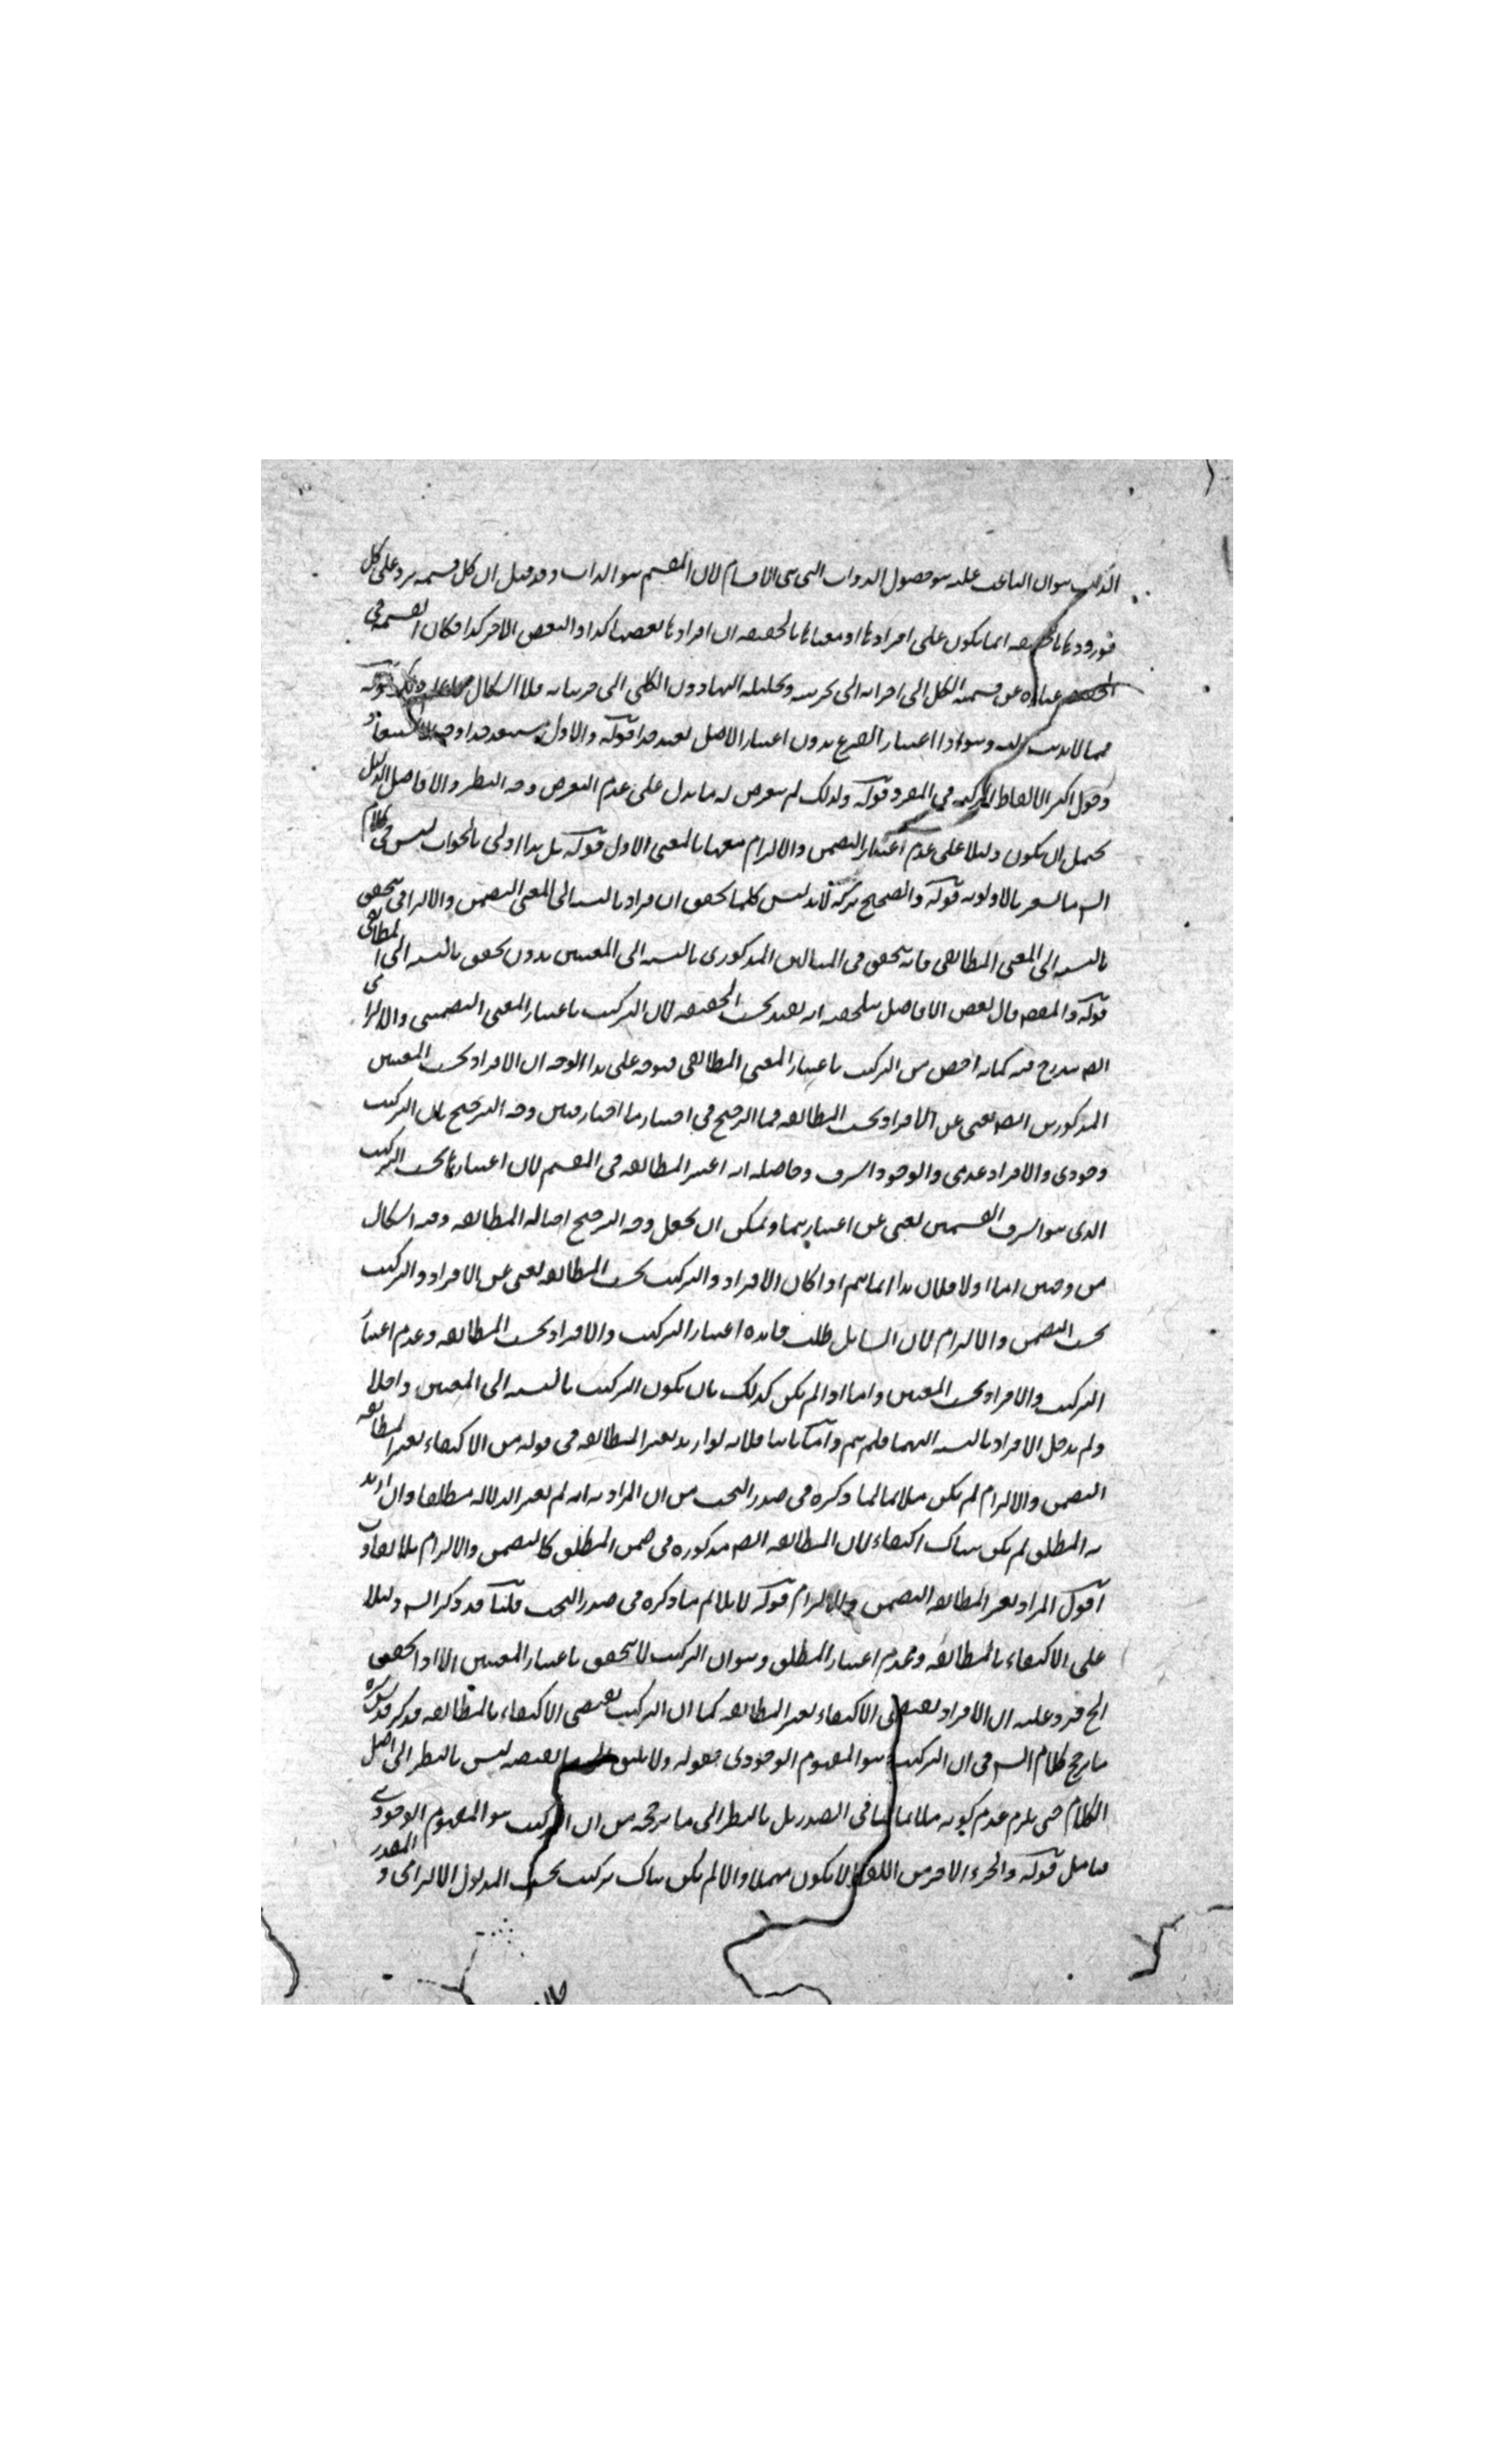 الذكر هو ان الباعث عليه هو حصول الذوات التي هي الاقسام لان المقسم هو الذات وقد قيل ان كل قسمة يرد على كل
فورودها بالحقيقة انما يكون على افرادها او معناها بالحقيقة ان افرادها بعضها كذا والبعض الاخر كذا فكان القسمة في
الحقيقة عبارة عن قسمة الكل الى اجزائه الى تجزيته وتحليله اليها دون الكلي الى جزئياته فلا اشكال قوله
مما لا يذهب اليه وهو اذا اعتبار الفرع بدون اعتبار الاصل بعيد جدا قوله والاول
دخول اكثر الالفاظ المركبة في المفرد قوله ولذلك لم يتعرض له ما يدل على عدم التعرض وجه النظر والافاضل الدليل
يحتمل ان يكون دليلا على عدم اعتبار التضمن والالتزام معها بالمعنى الاول قوله بل هذا اولى بالجواب ليس في كلام
الش ما يشعر بالاولوية قوله والصحيح تركه لانه ليس كلما تحقق افراد بالنسبة الى المعنى التضمني والالتزامي يتحقق
بالنسبة الى المعنى المطابقي فانه يتحقق في المثالين المذكورين بالنسبة الى المعنيين بدون تحقق بالنسبة الى المطابقي
قوله والمقصد قال بعض الافاضل تلخيصه انه يفيد بحسب الحقيقة لان التركيب باعتبار المعنى التضمني والالتزامي
ايضا مندرج فيه كما انه اخص من التركيب باعتبار المعنى المطابقي فيتوجه على هذا الوجه ان الافراد بحسب المعنيين
المذكورين ايضا يغني عن الافراد بحسب المطابقة فما الترجيح في اختيار ما اختار فبين وجه الترجيح بان التركيب
وجودي والافراد عدمي والوجود اشرف وحاصله انه اعتبر المطابقة في المقسم لان اعتبارها بحسب التركيب
الذي هو اشرف القسمين يغني عن اعتبارهما ويمكن ان يجعل وجه الترجيح اصالة المطابقة وفيه اشكال
من وجهين اما اولا فلان هذا انما يتم اذا كان الافراد والتركيب بحسب المطابقة يغني عن الافراد والتركيب
بحسب التضمن والالتزام لان السايل طلب فايدة اعتبار التركيب والافراد بحسب المطابقة وعدم اعتبار
التركيب والافراد بحسب المعنيين واما اذا لم يكن كذلك بان يكون التركيب بالنسبة الى المعنيين داخلا
ولم يدخل الافراد بالنسبة اليهما فلم يتم واما ثانيا فلانه لو اريد بغير المطابقة في قوله من الاكتفاء بغير المطابقة
التضمن والالتزام لم يكن ملائما لما ذكره في صدر البحث من ان المراد به انه لم يعتبر الدلالة مطلقا وان اريد
به المطلق لم يكن هناك اكتفاء لان المطابقة ايضا مذكورة في ضمن المطلق كالتضمن والالتزام بلا تفاوت
اقول المراد بغير المطابقة التضمن والالتزام قوله لا يلائم ما ذكره في صدر البحث قلنا قد ذكر الش دليلا
على الاكتفاء بالمطابقة وعدم اعتبار المطلق وهو ان التركيب لا يتحقق باعتبار المعنيين الا اذا تحقق
الخ فرد عليه ان الافراد يقتضي الاكتفاء بغير المطابقة كما ان التركيب يقتضي الاكتفاء بالمطابقة فذكر قدس سره
ما يرجح كلام الش في ان التركيب هو المفهوم الوجودي فقوله ولا يليق بالقصة ليس بالنظر الى اصل
الكلام حتى يلزم عدم كونه ملائما لما في الصدر بل بالنظر الى ما يرجحه من ان التركيب هو المفهوم الوجودي
فتامل قوله والجزء الاخر من اللفظ لا يكون مهملا والا لم يكن هناك تركيب بحسب المدلول الالتزامي و المقدر